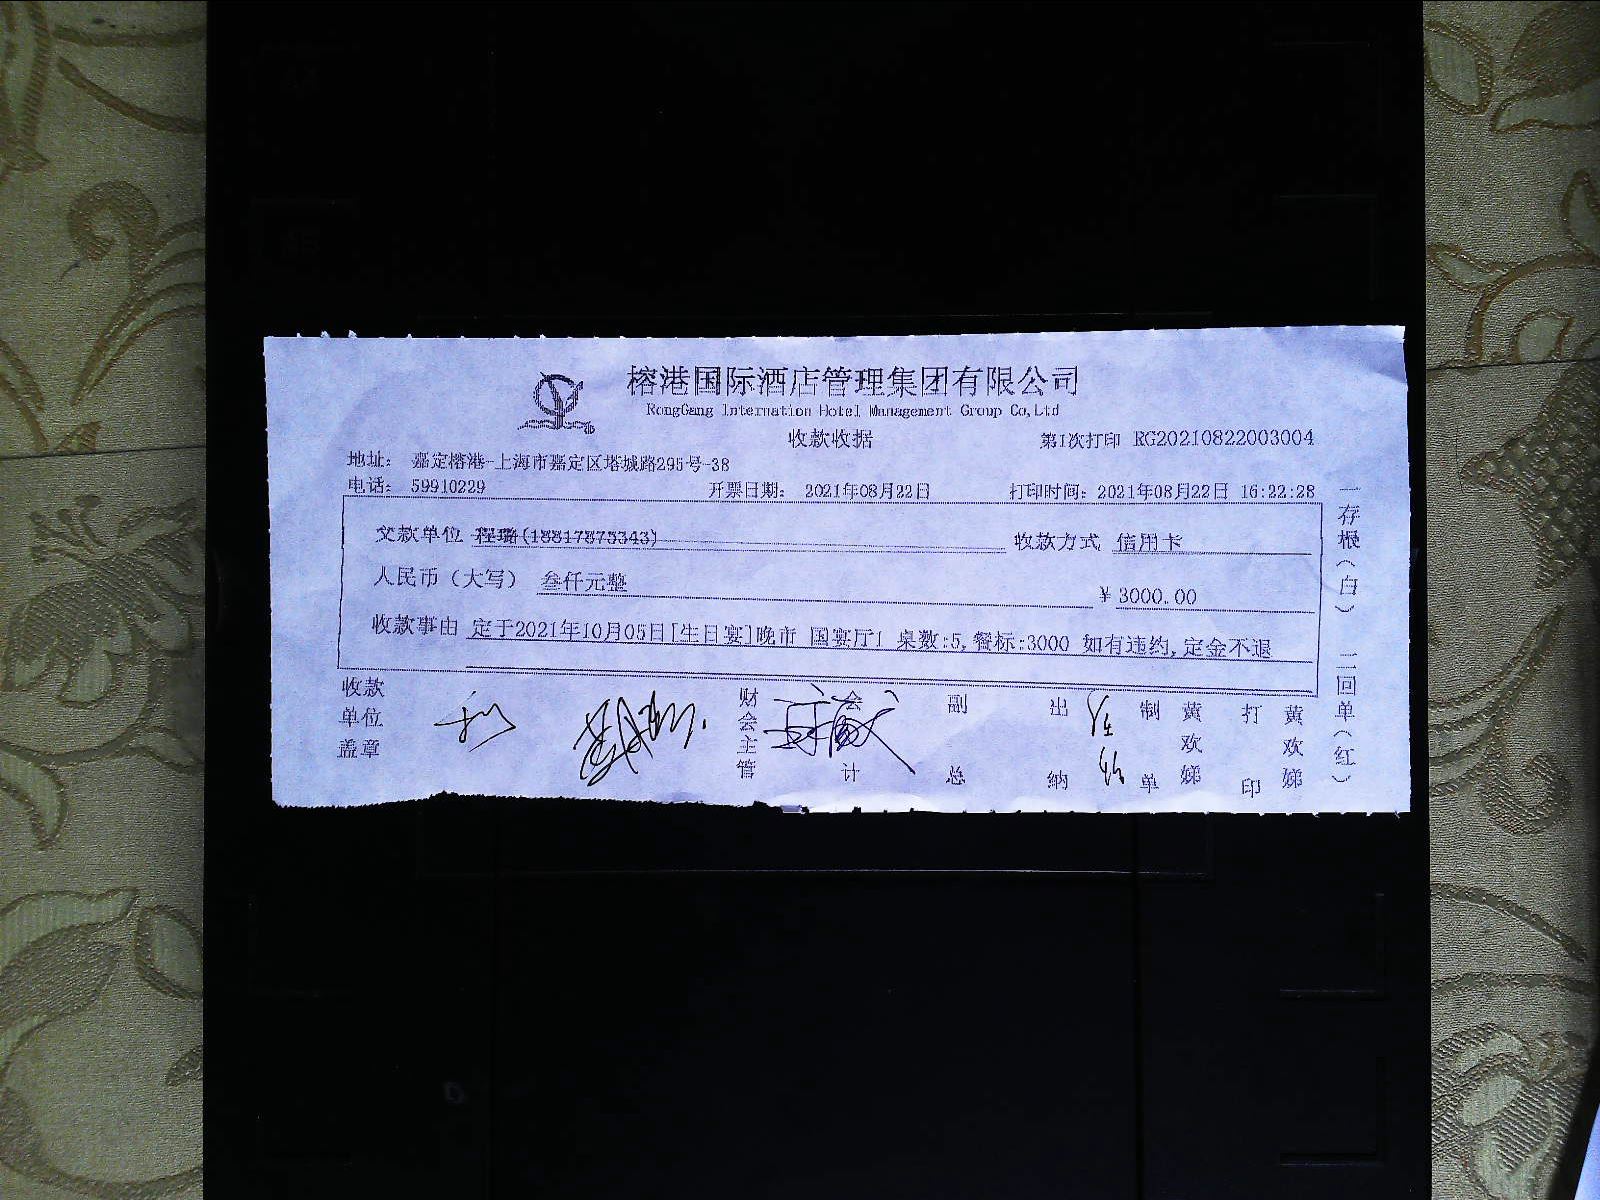 榕港国际酒店管理集团有限公司
RongGang Internation Hotel Management Group Co,Ltd
收款收据 第1次打印 RG20210822003004
地址： 嘉定榕港-上海市嘉定区塔城路295号-38
电话： 59910229 开票日期： 2021年08月22日 打印时间：2021年08月22日 16:22:28
交款单位 程璐(18817875343) 收款方式 信用卡
人民币（大写） 叁仟元整 ¥ 3000.00
收款事由 定于2021年10月05日[生日宴]晚市 国宴厅1 桌数:5,餐标:3000 如有违约,定金不退
收款单位盖章 财会主管 会计 副总 出纳 制单 黄欢娣 打印 黄欢娣
一存根（白） 二回单（红）